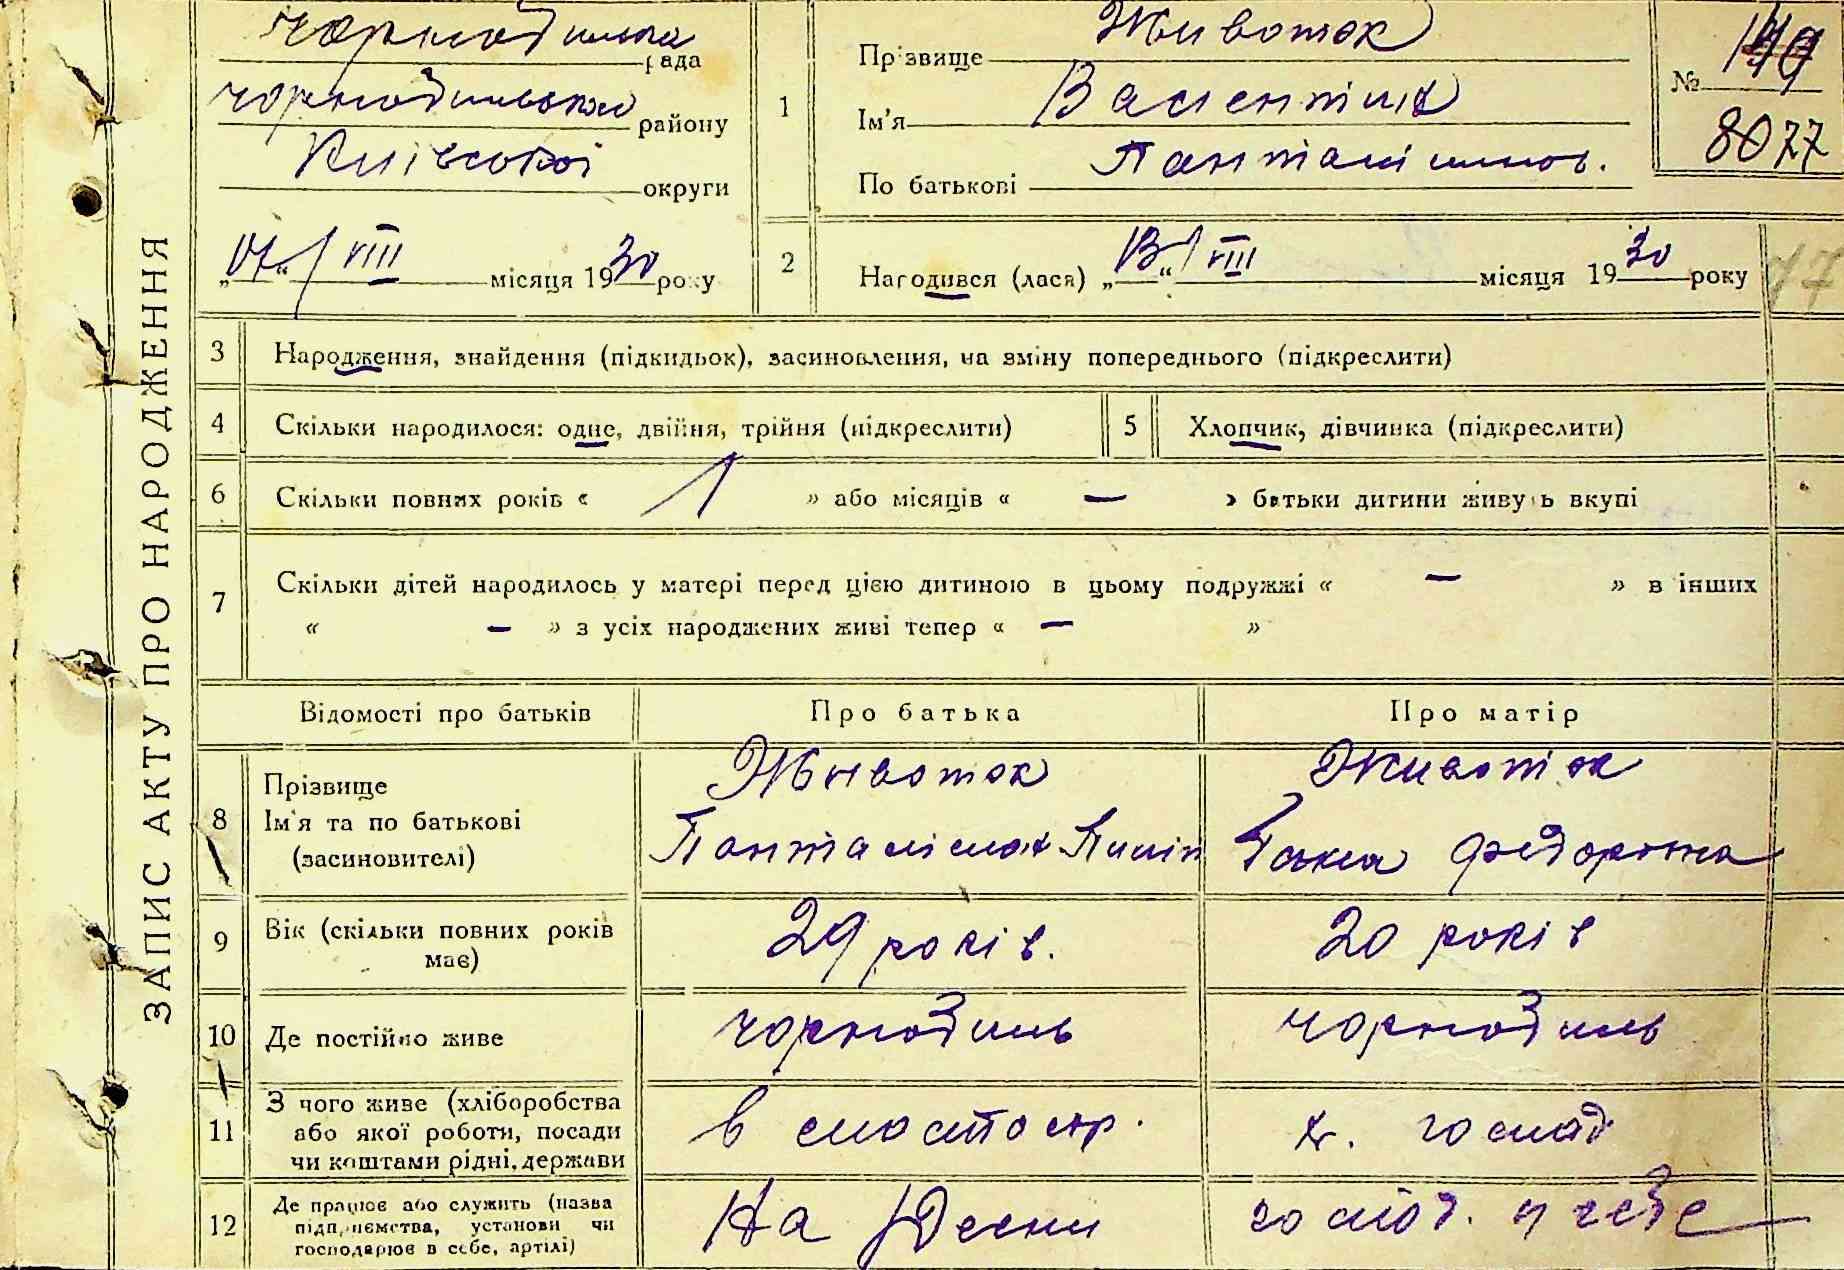 ЗАПИС АКТУ ПРО НАРОДЖЕННЯ
рада
Чорнобильськ району
Київської округи
"17" VIII місяця 1930 року
1
Прізвище Животок
Ім'я Валентин
По батькові
№ 8077
2
Народився (лася) "13" VIII місяця 1930 року
17
3 Народження, знайдення (підкидьок), засиновлення, на зміну попереднього (підкреслити)
4 Скільки народилося: одне, двійня, трійня (підкреслити)
5 Хлопчик, дівчинка (підкреслити)
6 Скільки повних років « 1 » або місяців « — » батьки дитини живуть вкупі
7 Скільки дітей народилось у матері перед цією дитиною в цьому подружжі « — » в інших
« — » з усіх народжених живі тепер « — »
Відомості про батьків Про батька Про матір
8 Прізвище
Ім'я та по батькові
(засиновителі)
Животок
Животок
Федоровна
9 Вік (скільки повних років
має)
29 років.
20 років
10 Де постійно живе
Чорнобиль
Чорнобиль
11 З чого живе (хліборобства
або якої роботи, посади
чи коштами рідні, держави
в
господ
12 Де працює або служить (назва
підприємства, установи чи
господарює в себе, артілі)
На Десни
господ. у себе